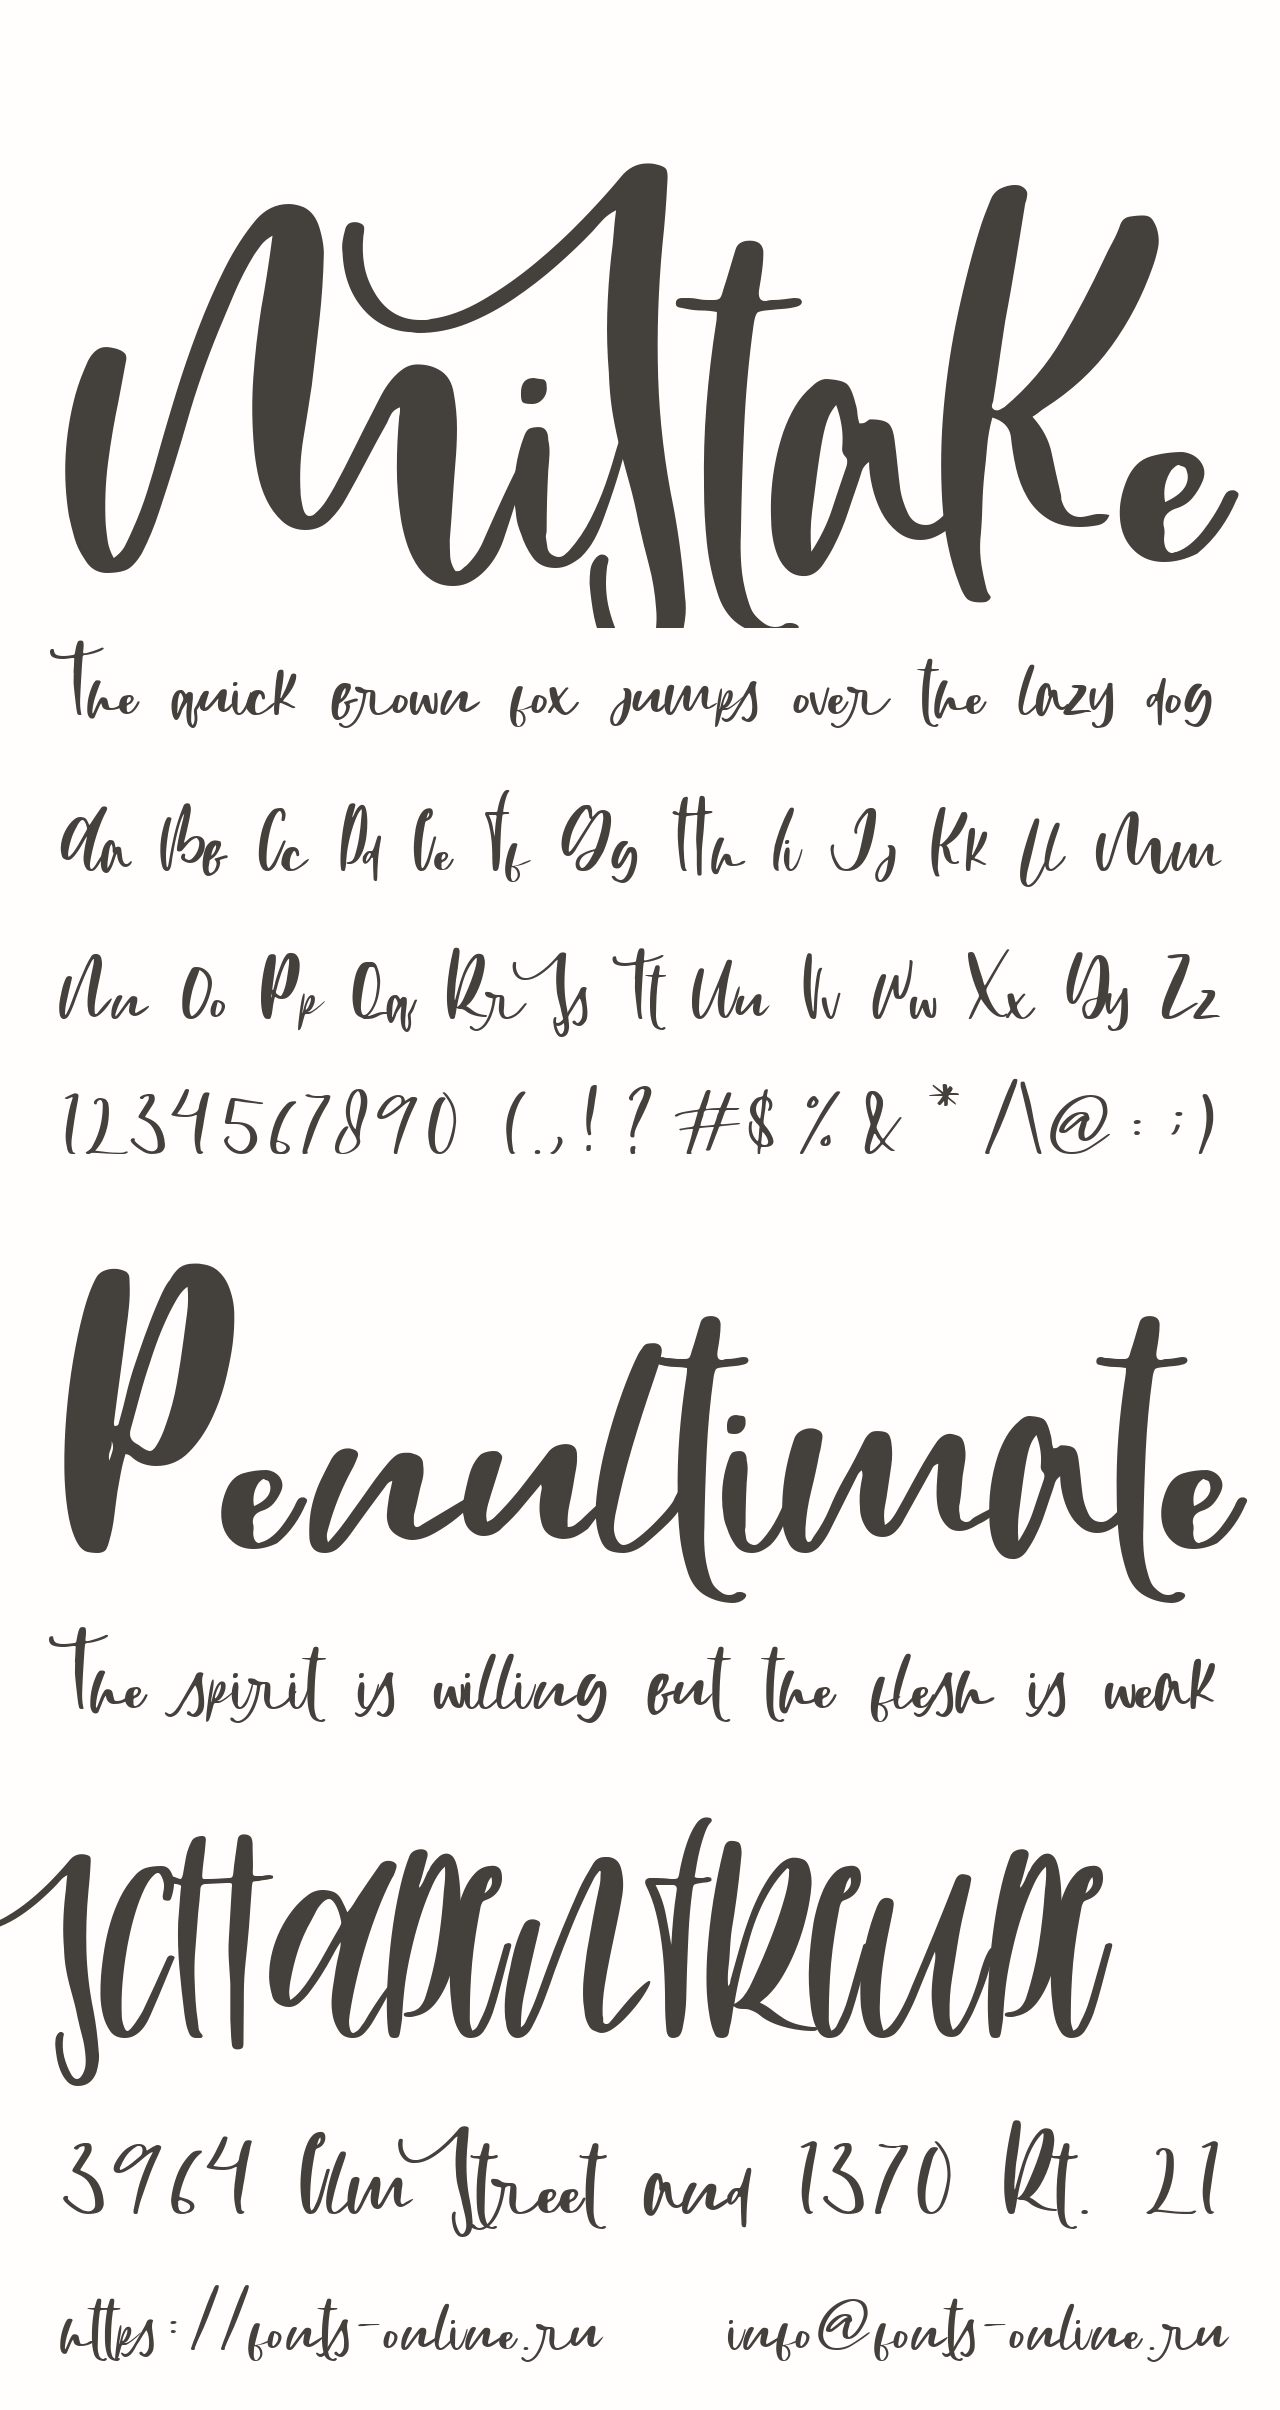 MiStaKe
The quick brown fox jumps over the lazy dog
Aa Bb Cc Dd Ee Ff Gg Hh Ii Jj Kk Ll Mm
Nn Oo Pp Qq Rr Ss Tt Uu Vv Ww Xx Yy Zz
1234567890 (.,!? #$ % & * /\@ : ;)
Penultimate
The spirit is willing but the flesh is weak
SCHADENFREUDE
3964 Elm Street and 1370 Rt. 21
https://fonts-online.ru info@fonts-online.ru